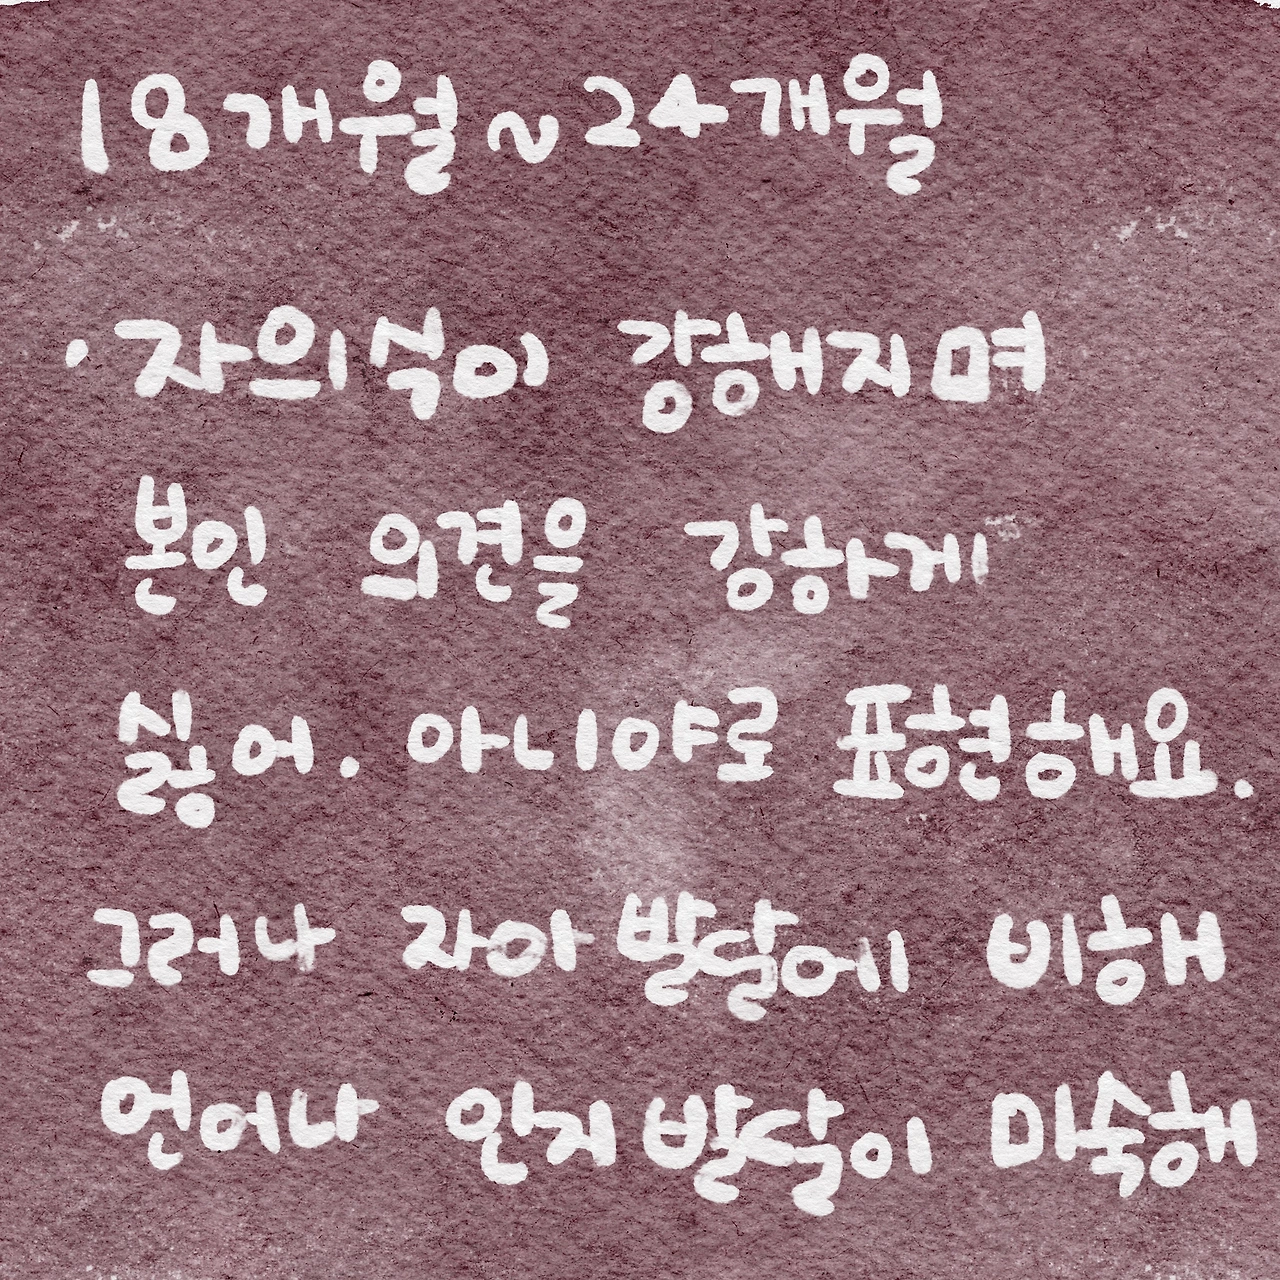 18개월~24개월
· 자의식이 강해지며
본인 의견을 강하게
싫어. 아니야로 표현해요.
그러나 자아발달에 비해
언어나 인지발달이 미숙해